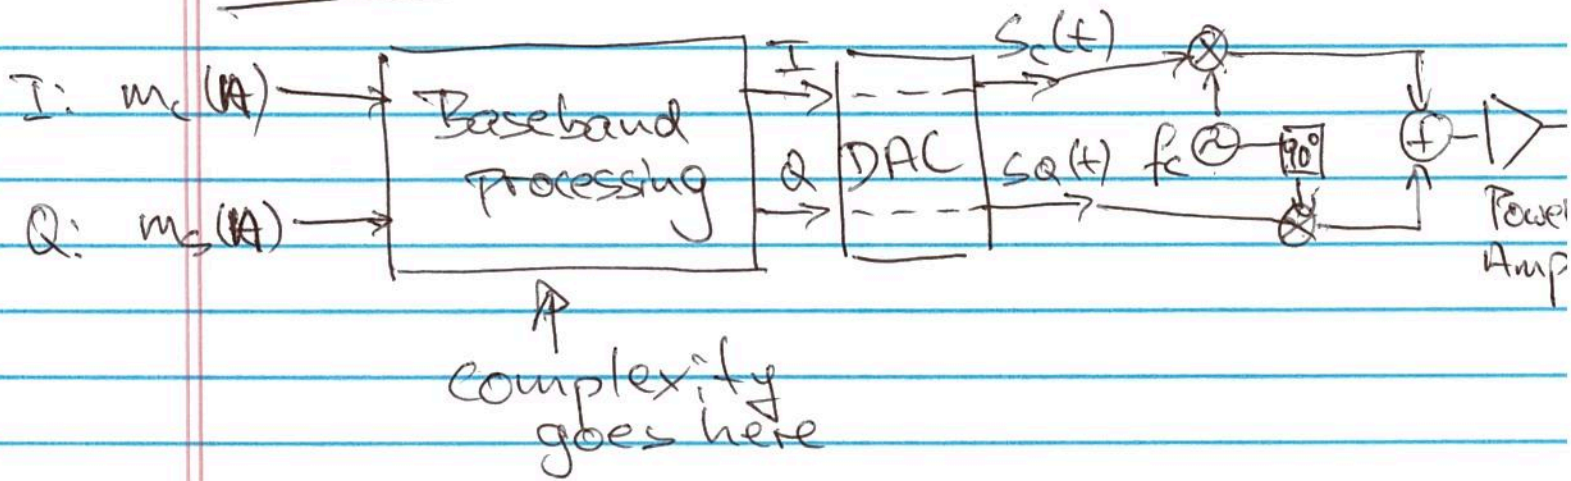 I: m_c(A)
Q: m_s(A)
Baseband
processing
I
Q
DAC
S_c(t)
S_Q(t)
f_c
90°
Power
Amp
complexity
goes here